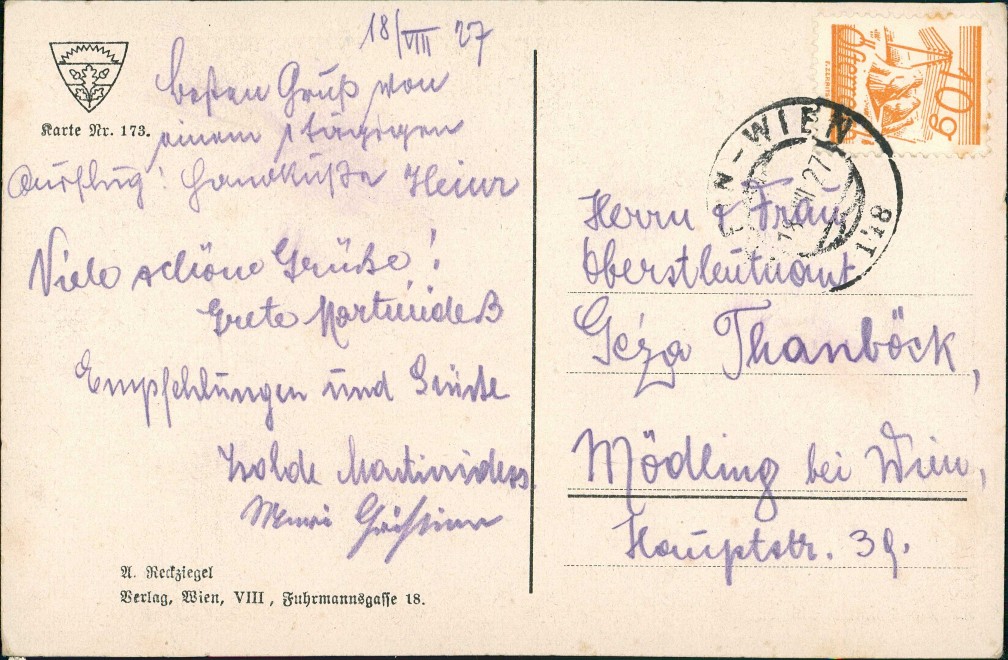 18/VIII 27
besten Gruß von
einem 1tägigen
Ausflug! Handküße Heinr
Viele schöne Grüße!
Grete Martinideß
Empfehlungen und Grüße
Isolde Martinidess.
Karte Nr. 173.
A. Reckziegel
Verlag, Wien, VIII, Fuhrmannsgasse 18.
10g
WIEN
118
VIII 27
Herrn & Frau
Oberstleutnant
Géza Thanböck,
Mödling bei Wien,
Hauptstr. 39.